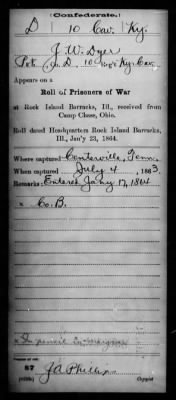 Confederate.
D 10 Cav. Ky.
J. W. Dyer
Pvt Co. D, 10 Reg't Ky. Cav.
Appears on a
Roll of Prisoners of War
at Rock Island Barracks, Ill., received from
Camp Chase, Ohio.
Roll dated Headquarters Rock Island Barracks,
Ill., Jan'y 23, 1864.
Where captured Centerville, Tenn.
When captured July 4, 1863.
Remarks: Entered Jany 17, 1864
x Co. B.
x In pencil in margin
Number of roll:
87
J A Phillips
Copyist